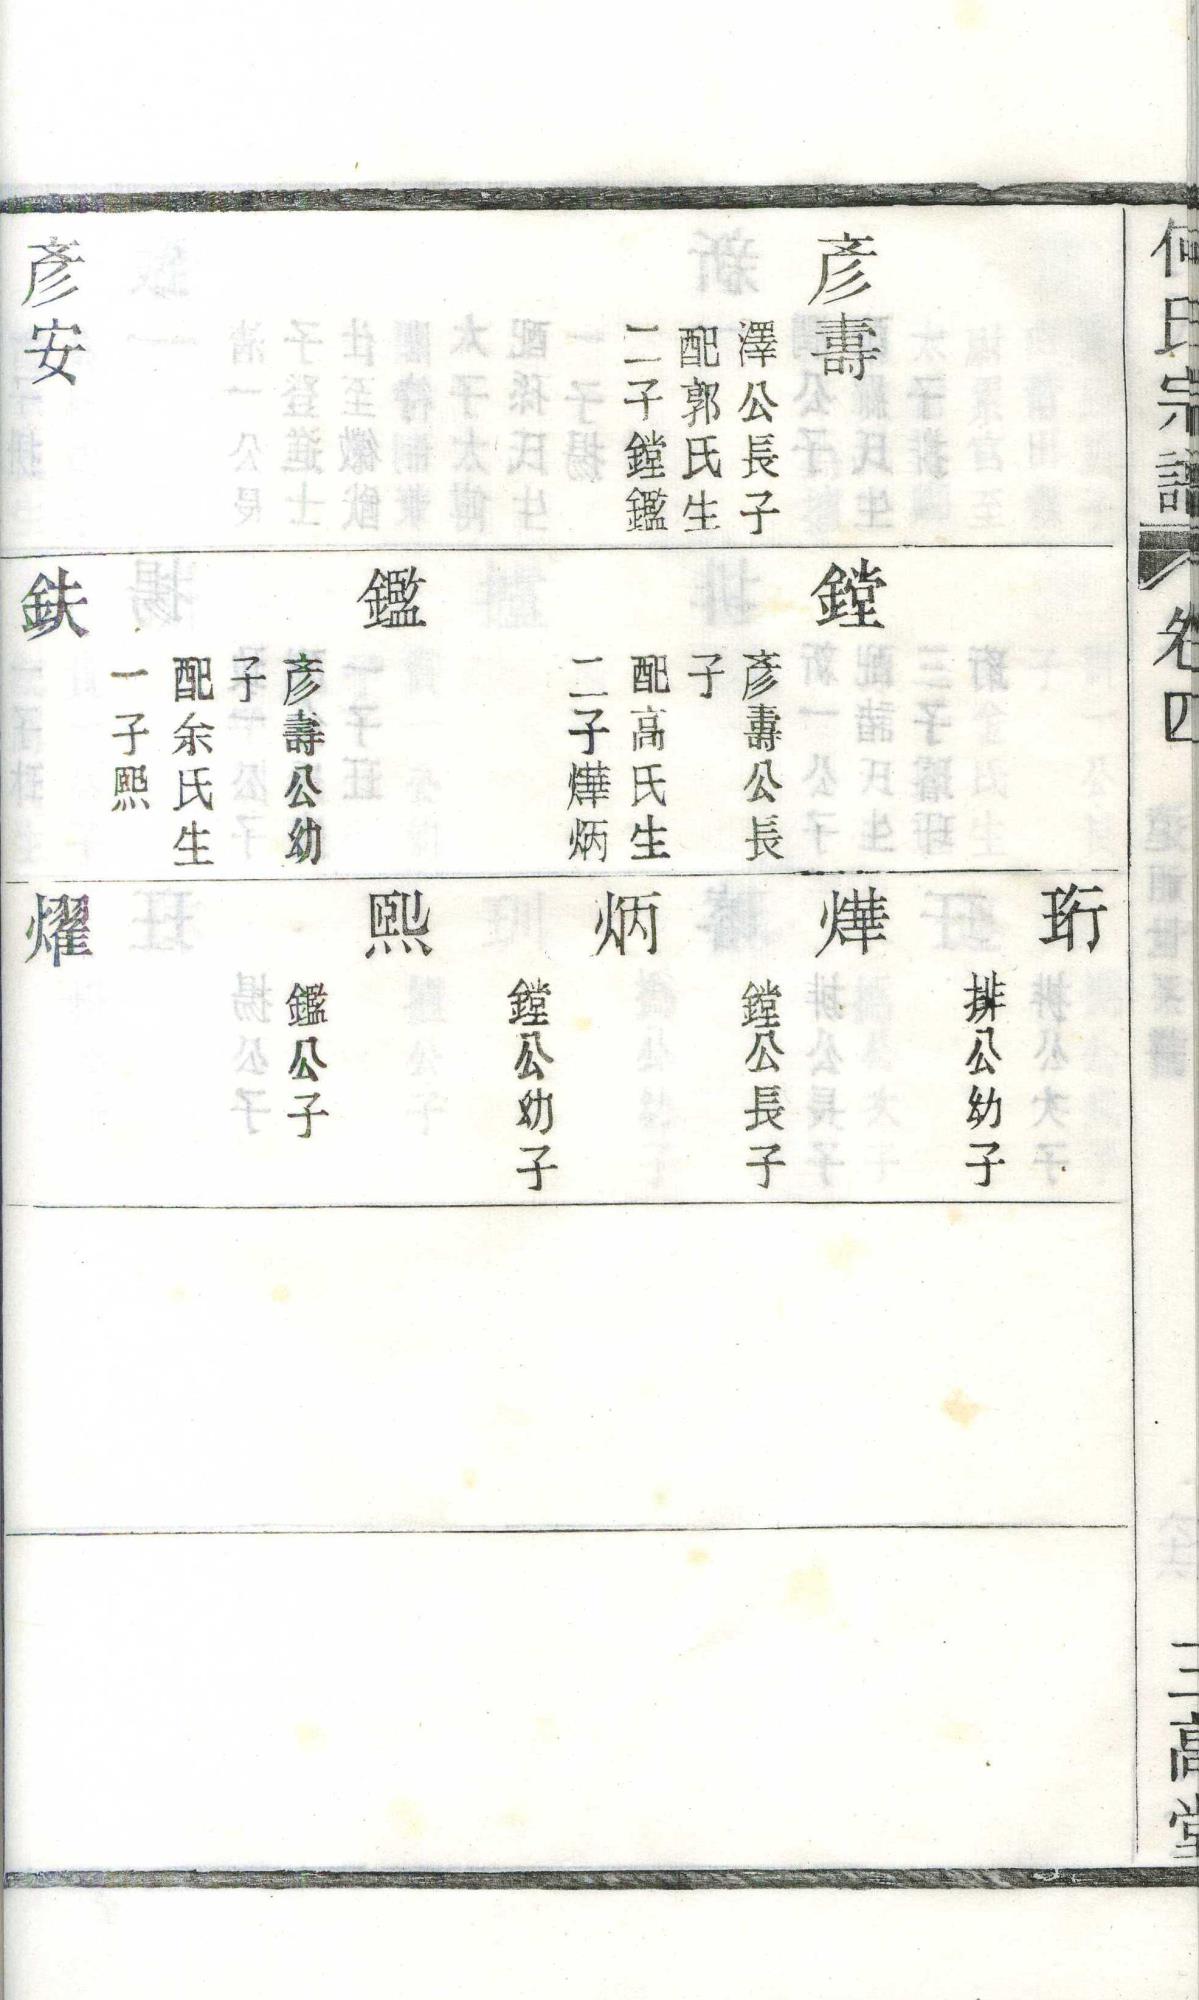 何氏宗譜
卷四
三高堂
彥壽
澤公長子
配郭氏生
二子鏜鑑
彥安
鏜
彥壽公長
子
配高氏生
二子燁炳
鑑
彥壽公幼
子
配余氏生
一子熙
鈇
珩
排公幼子
燁
鏜公長子
炳
鏜公幼子
熙
鑑公子
燿